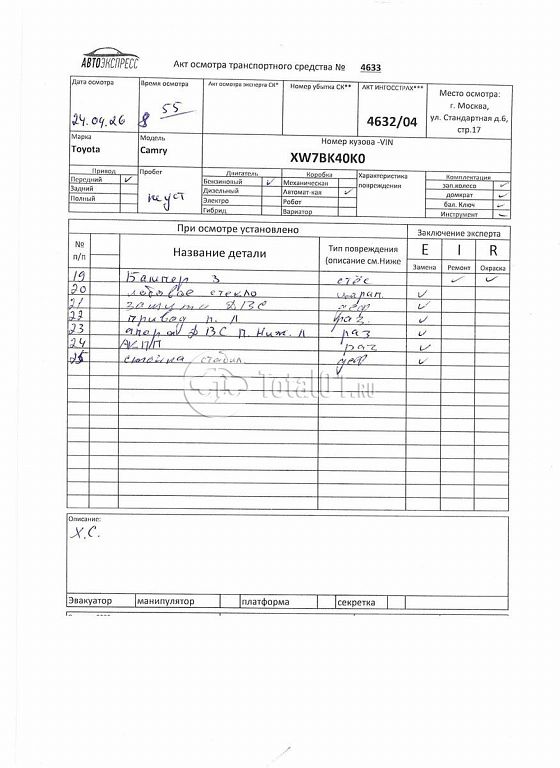 АВТОЭКСПРЕСС
Акт осмотра транспортного средства № 4633
Дата осмотра
24.04.26
Время осмотра
8 55
Акт осмотра эксперта СК*
Номер убытка СК**
АКТ ИНГОССТРАХ***
4632/04
Место осмотра:
г. Москва,
ул. Стандартная д.6,
стр.17
Марка
Toyota
Модель
Camry
Номер кузова -VIN
XW7BK40K0
Привод
Передний ✓
Задний
Полный
Пробег
не уст
Двигатель
Бензиновый ✓
Дизельный
Электро
Гибрид
Коробка
Механическая
Автомат-кая ✓
Робот
Вариатор
Характеристика
повреждения
Комплектация
зап.колесо ✓
домкрат ✓
бал. Ключ ✓
Инструмент ✓
При осмотре установлено
Заключение эксперта
№
п/п
Название детали
Тип повреждения
(описание см.Ниже
E I R
Замена Ремонт Окраска
19 Бампер З ✓ ✓
20 лобовое стекло ✓
21 ДВС ✓
22 привод п. Л раз ✓
23 опора ДВС П. Ниж. Л раз ✓
24 АКПП раз ✓
25 стойка стабил. деф ✓
Total01.RU
Описание:
Х.С.
Эвакуатор манипулятор платформа секретка